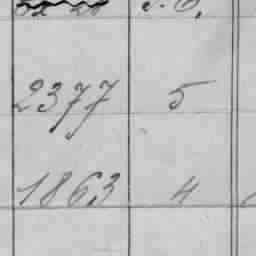 2377 5
1863 4